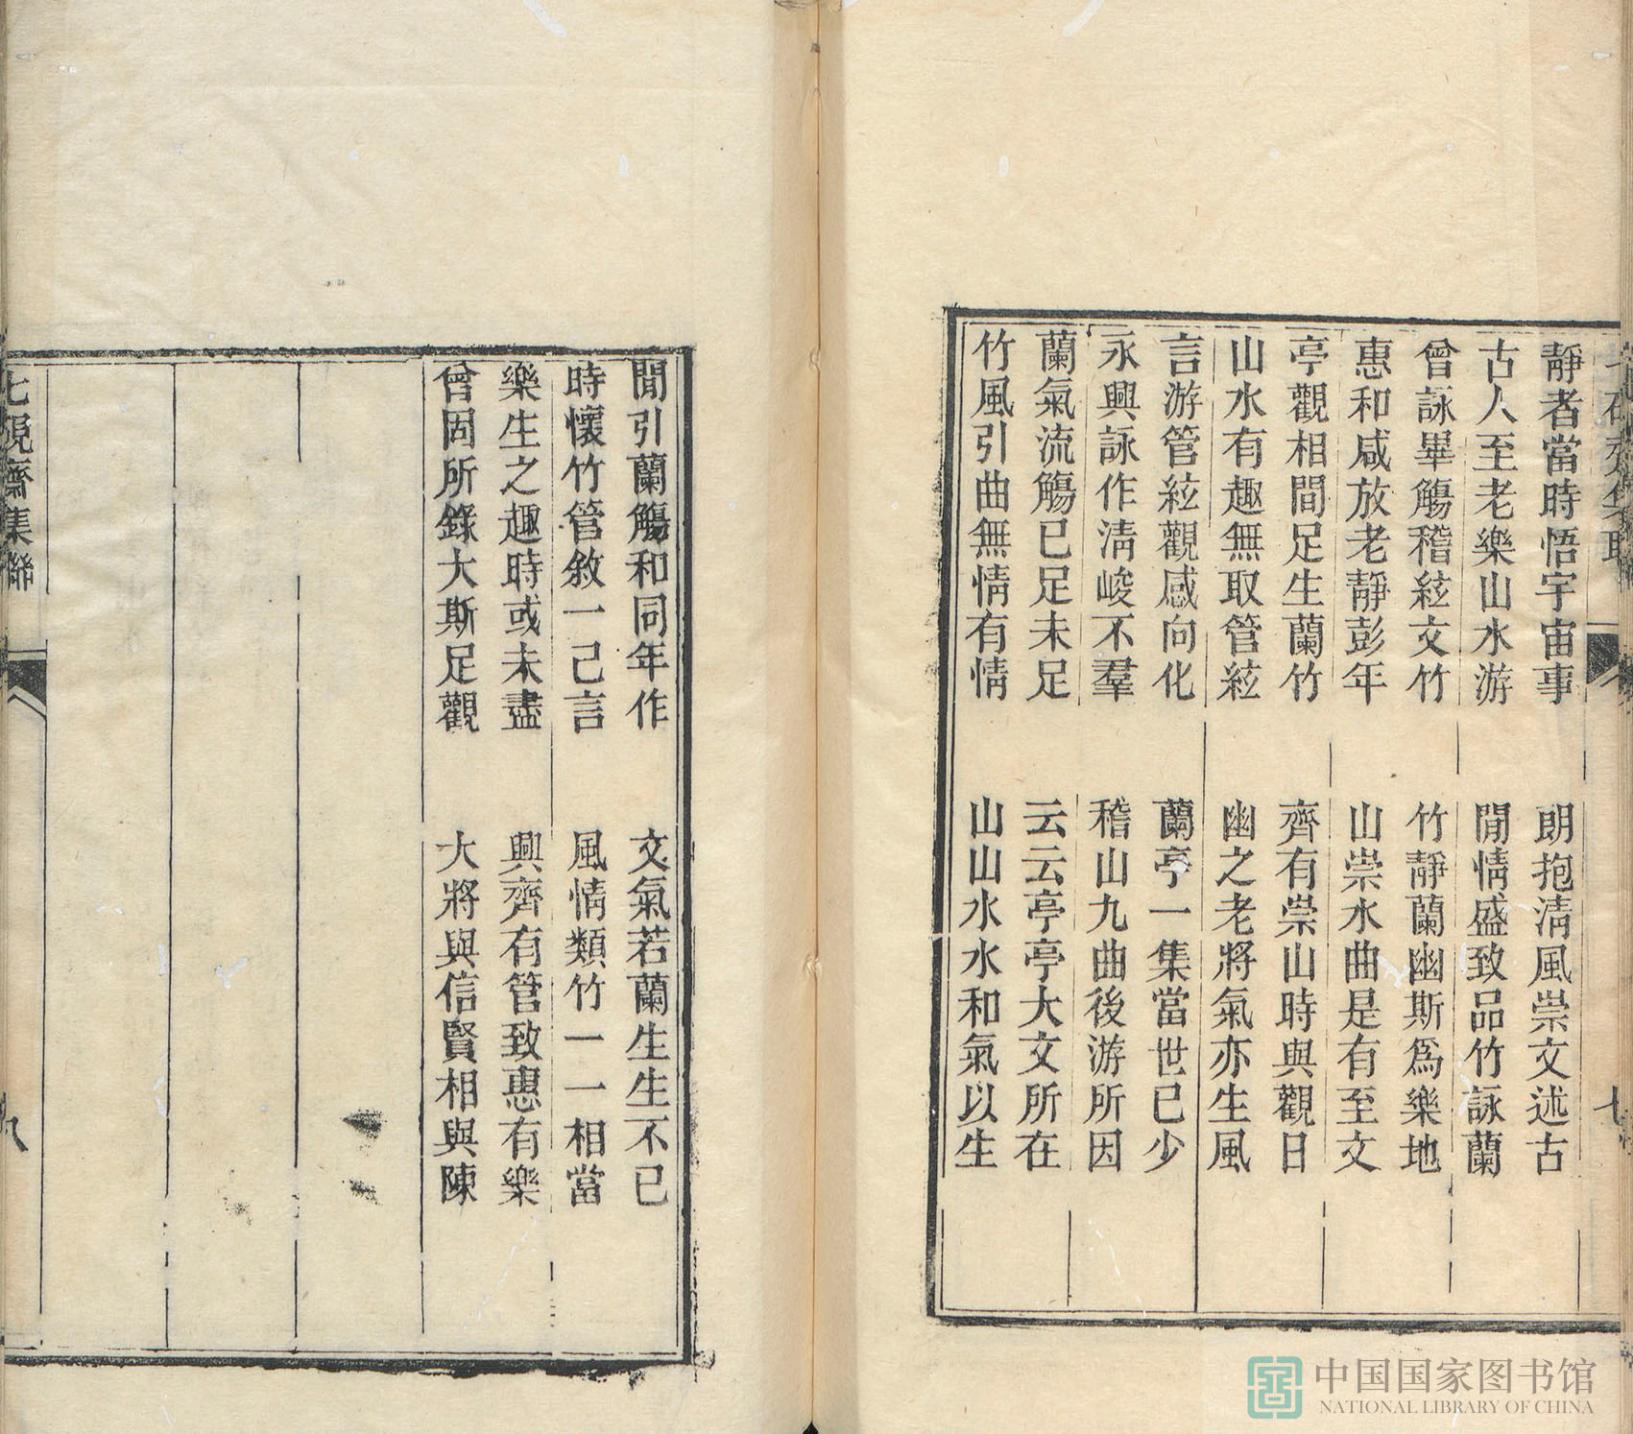 靜者當時悟宇宙事　朗抱清風崇文述古
古人至老樂山水游　閒情盛致品竹詠蘭
曾詠畢觴稽絃文竹　竹靜蘭幽斯爲樂地
惠和咸放老靜彭年　山崇水曲是有至文
亭觀相間足生蘭竹　齊有崇山時與觀日
山水有趣無取管絃　幽之老將氣亦生風
言游管絃觀感向化　蘭亭一集當世已少
永興詠作淸峻不羣　稽山九曲後游所因
蘭氣流觴已足未足　云云亭亭大文所在
竹風引曲無情有情　山山水水和氣以生
閒引蘭觴和同年作　文氣若蘭生生不已
時懷竹管敘一己言　風情類竹一一相當
樂生之趣時或未盡　興齊有管致惠有樂
曾固所錄大斯足觀　大將與信賢相與陳
七硯齋集聯
中国国家图书馆
NATIONAL LIBRARY OF CHINA